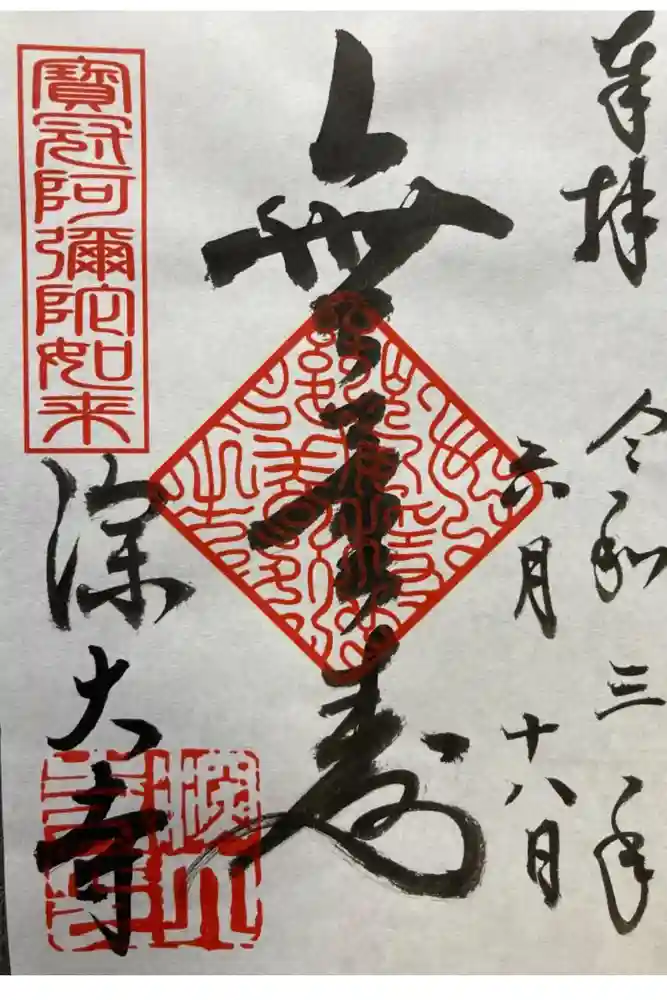 奉拝
令和三年
六月十八日
無量寿
寶冠阿彌陀如来
深大寺